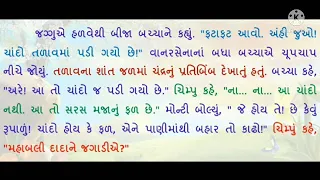 જગ્ગુએ હળવેથી બીજા બચ્ચાને કહ્યું. "ફટાફટ આવો. અંહી જુઓ!
ચાંદો તળાવમાં પડી ગયો છે!" વાનરસેનાનાં બધા બચ્ચાએ ચૂપચાપ
નીચે જોયું. તળાવના શાંત જળમાં ચંદ્રનું પ્રતિબિંબ દેખાતું હતું. બચ્ચા કહે,
"અરે! આ તો ચાંદો જ પડી ગયો છે." ચિમ્પુ કહે, "ના... ના... આ ચાંદો
નથી. આ તો સરસ મજાનું ફળ છે." મોન્ટી બોલ્યું, " જે હોય તે! છે કેવું
રૂપાળું! ચાંદો હોય કે ફળ, એને પાણીમાંથી બહાર તો કાઢો!" ચિમ્પુ કહે,
"મહાબલી દાદાને જગાડીએ?"